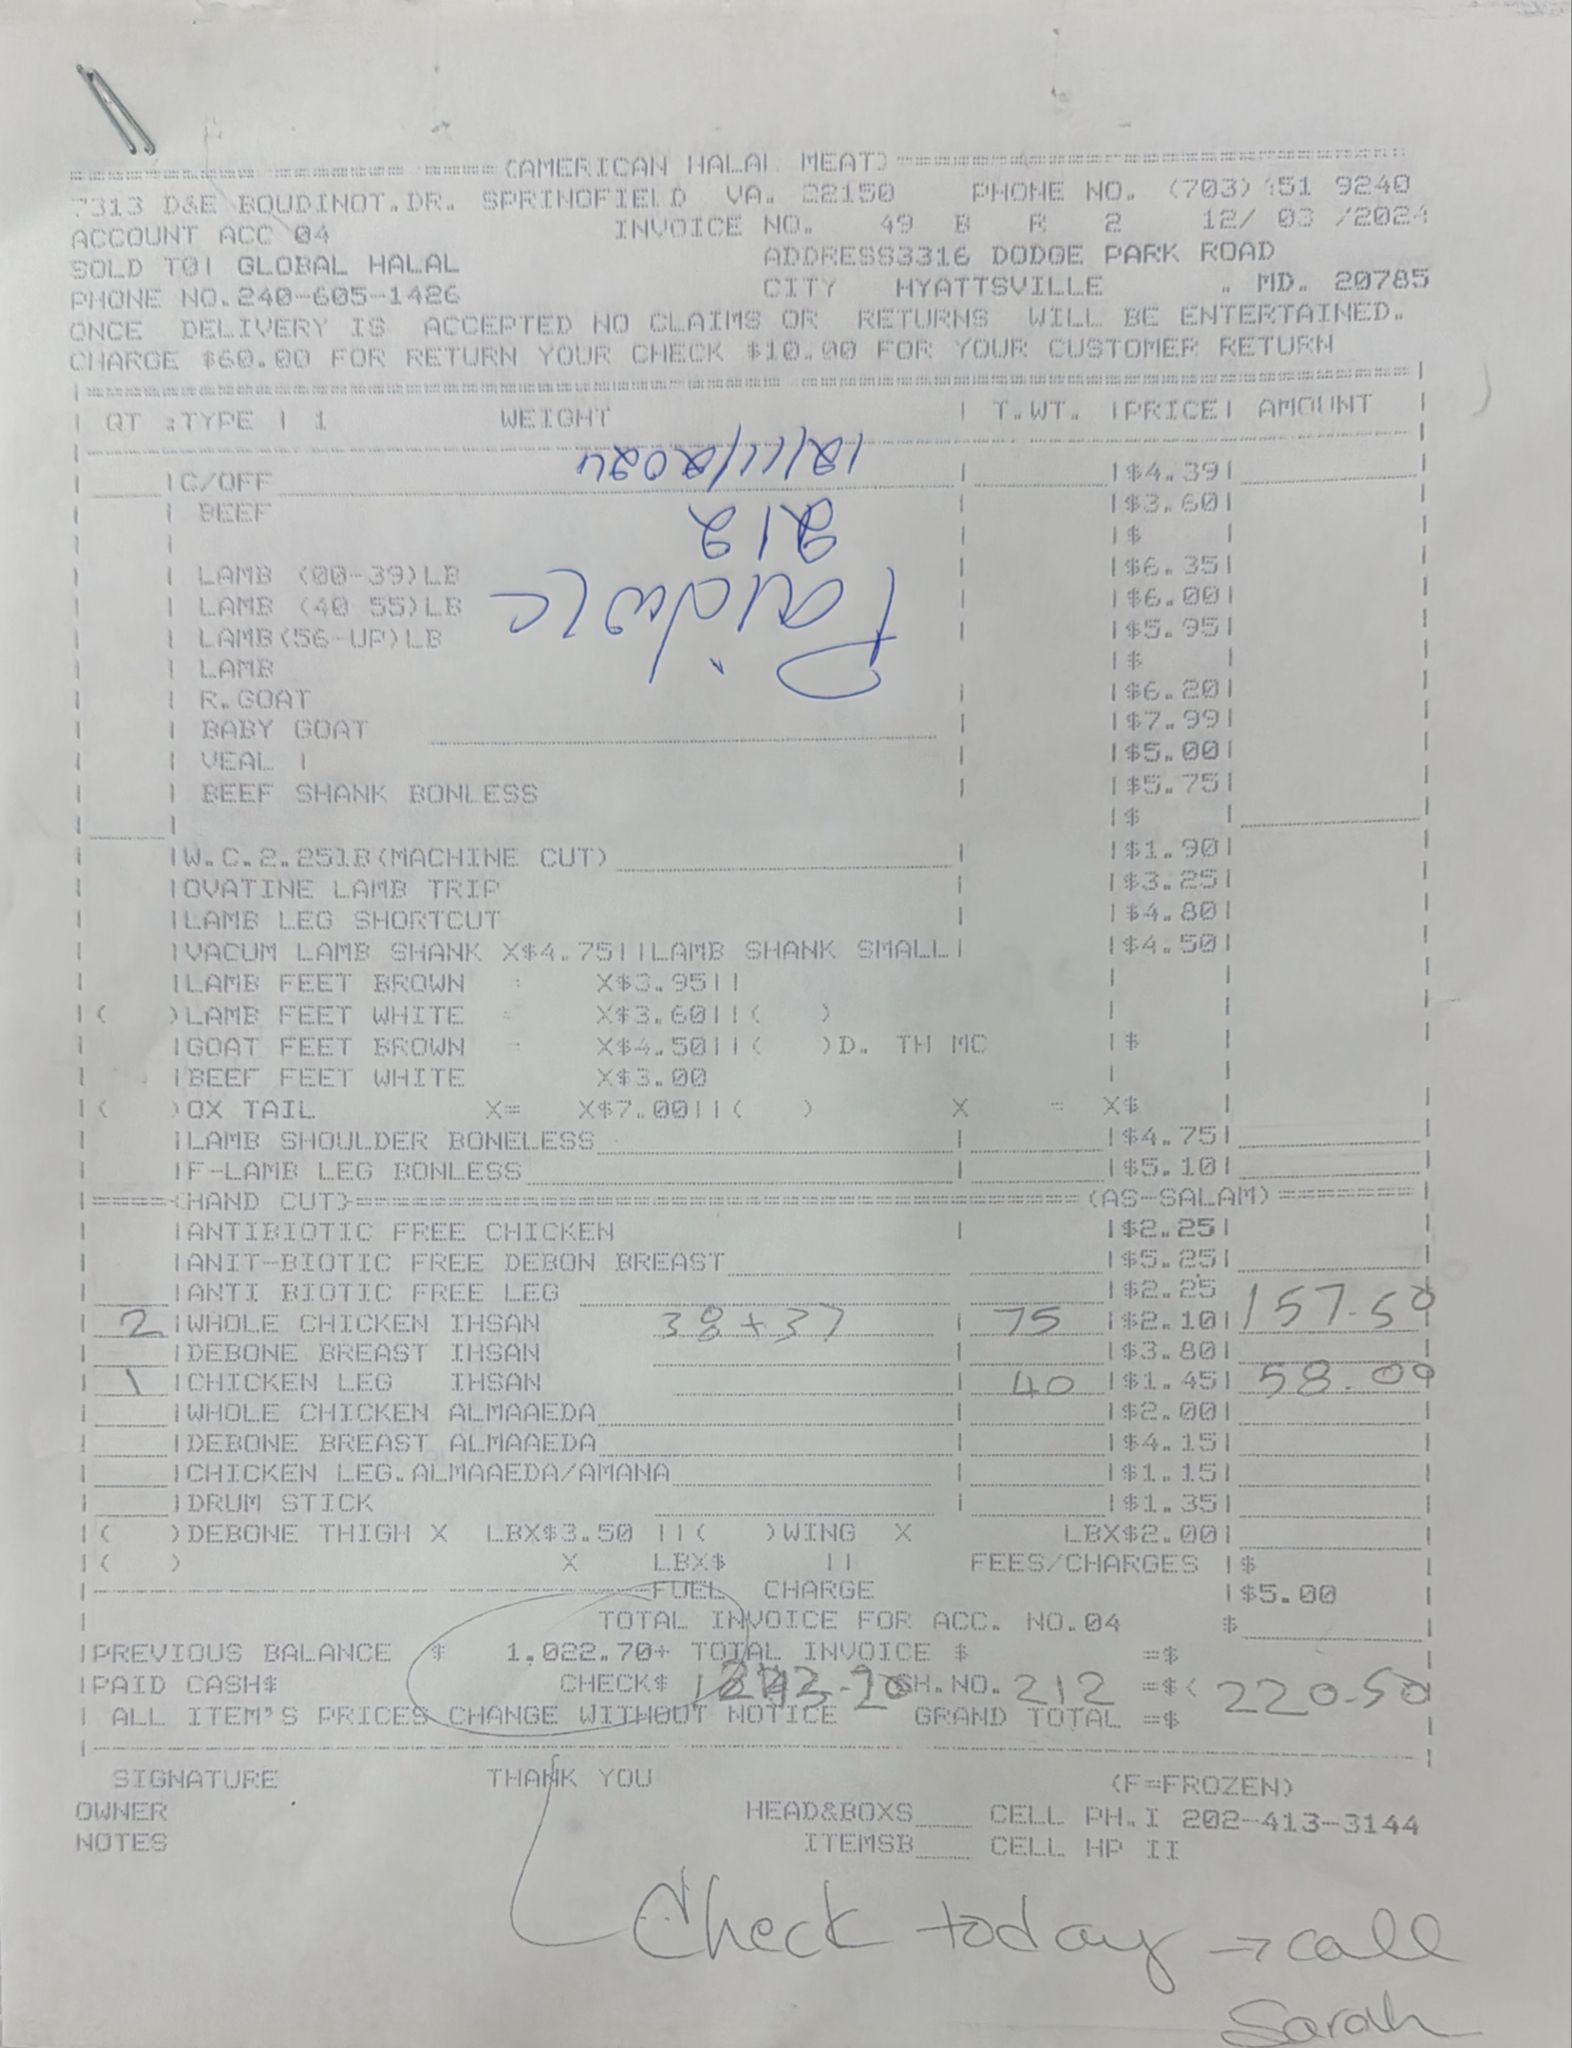 (AMERICAN HALAL MEAT)
7313 D&E BOUDINOT.DR. SPRINGFIELD VA. 22150 PHONE NO. (703) 451 9240
ACCOUNT ACC 04 INVOICE NO. 49 B R 2 12/ 03 /2024
SOLD TO| GLOBAL HALAL ADDRESS3316 DODGE PARK ROAD
PHONE NO.240-605-1426 CITY HYATTSVILLE . MD. 20785
ONCE DELIVERY IS ACCEPTED NO CLAIMS OR RETURNS WILL BE ENTERTAINED.
CHARGE $60.00 FOR RETURN YOUR CHECK $10.00 FOR YOUR CUSTOMER RETURN
QT :TYPE | 1 WEIGHT | T.WT. |PRICE| AMOUNT
12/11/2024
|C/OFF |$4.39|
212
| BEEF |$3.60|
|$ |
Paid
| LAMB (00-39)LB |$6.35|
| LAMB (40 55)LB |$6.00|
| LAMB(56-UP)LB |$5.95|
| LAMB |$ |
| R.GOAT |$6.20|
| BABY GOAT |$7.99|
| VEAL | |$5.00|
| BEEF SHANK BONLESS |$5.75|
|$ |
|W.C.2.25lB(MACHINE CUT) |$1.90|
|OVATINE LAMB TRIP |$3.25|
|LAMB LEG SHORTCUT |$4.80|
|VACUM LAMB SHANK X$4.75||LAMB SHANK SMALL| |$4.50|
|LAMB FEET BROWN X$3.95||
|( )LAMB FEET WHITE X$3.60||( )
|GOAT FEET BROWN X$4.50||( )D. TH MC |$
|BEEF FEET WHITE X$3.00
|( )OX TAIL X= X$7.00||( ) X = X$ |
|LAMB SHOULDER BONELESS |$4.75|
|F-LAMB LEG BONLESS |$5.10|
(HAND CUT) (AS-SALAM)
|ANTIBIOTIC FREE CHICKEN |$2.25|
|ANIT-BIOTIC FREE DEBON BREAST |$5.25|
|ANTI BIOTIC FREE LEG |$2.25
2 |WHOLE CHICKEN IHSAN 38+37 | 75 |$2.10| 157.50
|DEBONE BREAST IHSAN |$3.80|
1 |CHICKEN LEG IHSAN | 40 |$1.45| 58.00
|WHOLE CHICKEN ALMAAEDA |$2.00|
|DEBONE BREAST ALMAAEDA |$4.15|
|CHICKEN LEG.ALMAAEDA/AMANA |$1.15|
|DRUM STICK |$1.35|
|( )DEBONE THIGH X LBX$3.50 ||( )WING X LBX$2.00|
|( ) X LBX$ || FEES/CHARGES |$
FUEL CHARGE |$5.00
TOTAL INVOICE FOR ACC. NO.04 $
|PREVIOUS BALANCE $ 1,022.70+ TOTAL INVOICE $ =$
|PAID CASH$ CHECK$ CH.NO. 212 =$( 220.50
| ALL ITEM'S PRICES CHANGE WITHOUT NOTICE GRAND TOTAL =$
SIGNATURE THANK YOU (F=FROZEN)
OWNER HEAD&BOXS____ CELL PH.I 202-413-3144
NOTES ITEMSB____ CELL HP II
Check today → call
Sarah